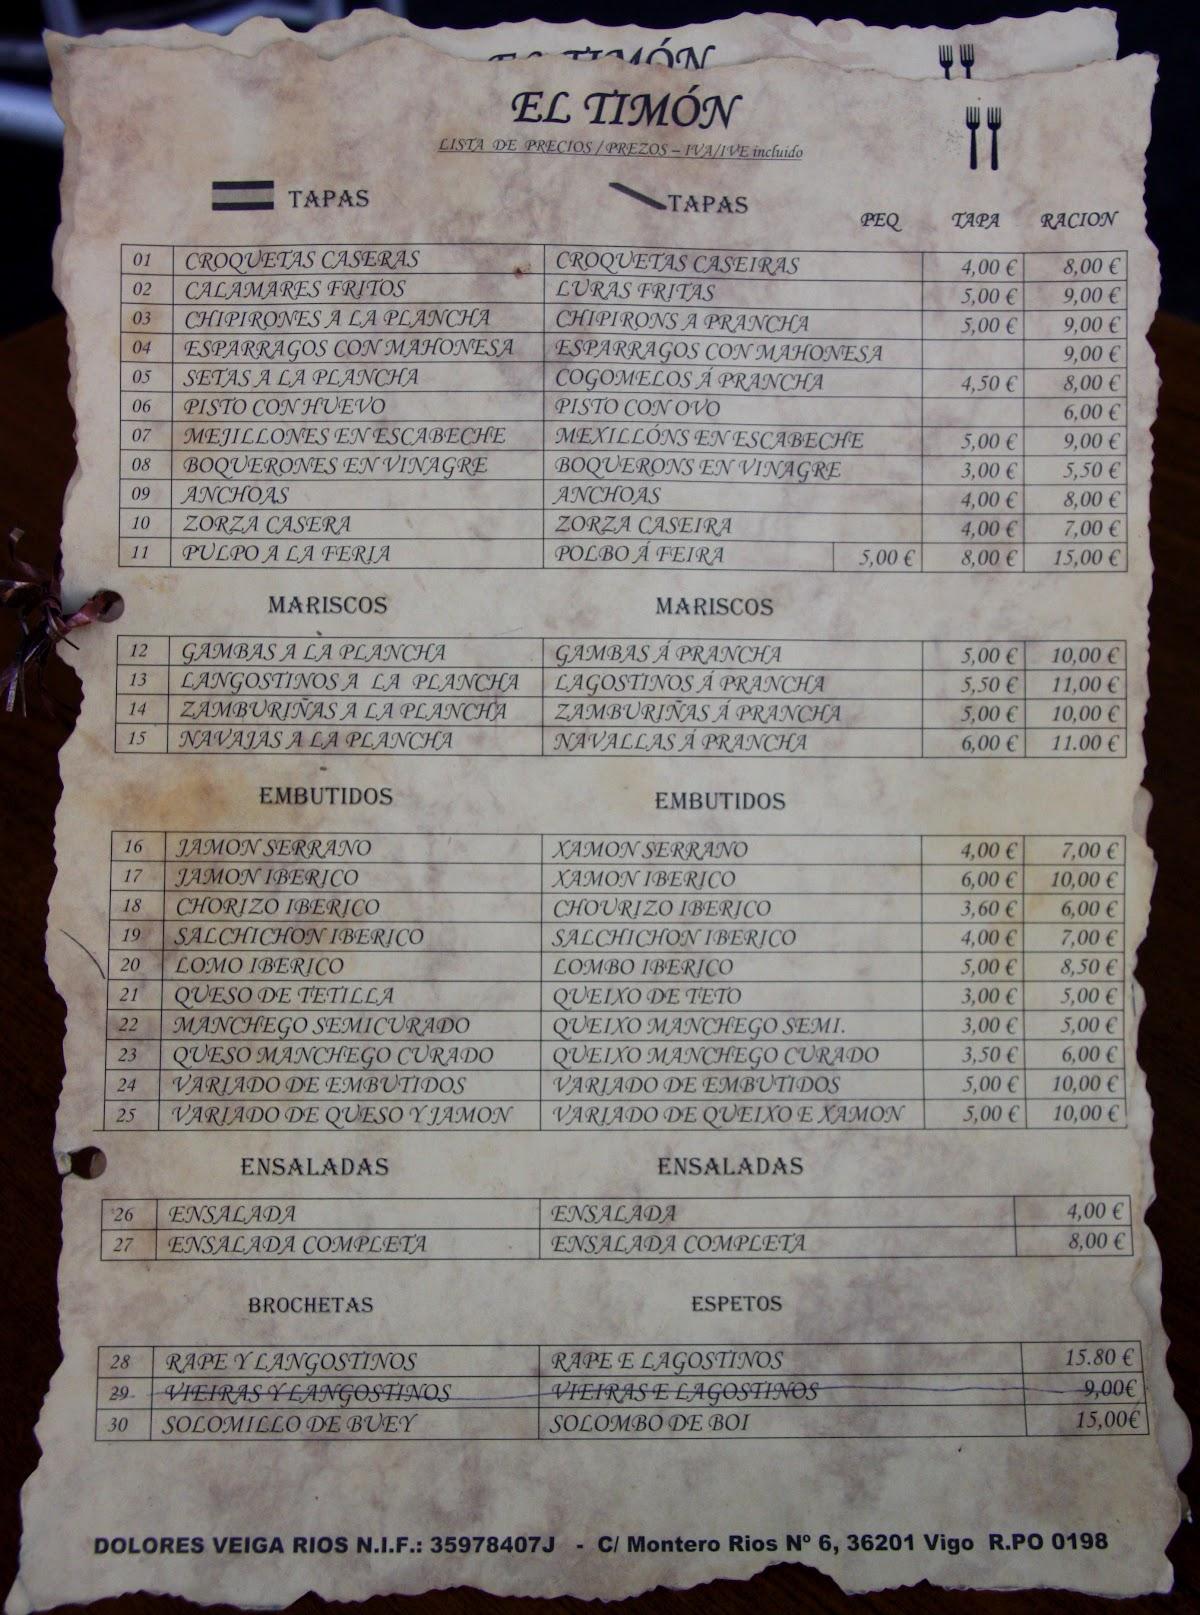 EL TIMÓN
EL TIMÓN
LISTA DE PRECIOS / PREZOS – IVA/IVE incluido
TAPAS TAPAS PEQ TAPA RACION
01 CROQUETAS CASERAS CROQUETAS CASEIRAS 4,00 € 8,00 €
02 CALAMARES FRITOS LURAS FRITAS 5,00 € 9,00 €
03 CHIPIRONES A LA PLANCHA CHIPIRONS A PRANCHA 5,00 € 9,00 €
04 ESPARRAGOS CON MAHONESA ESPARRAGOS CON MAHONESA 9,00 €
05 SETAS A LA PLANCHA COGOMELOS Á PRANCHA 4,50 € 8,00 €
06 PISTO CON HUEVO PISTO CON OVO 6,00 €
07 MEJILLONES EN ESCABECHE MEXILLÓNS EN ESCABECHE 5,00 € 9,00 €
08 BOQUERONES EN VINAGRE BOQUERONS EN VINAGRE 3,00 € 5,50 €
09 ANCHOAS ANCHOAS 4,00 € 8,00 €
10 ZORZA CASERA ZORZA CASEIRA 4,00 € 7,00 €
11 PULPO A LA FERIA POLBO Á FEIRA 5,00 € 8,00 € 15,00 €
MARISCOS MARISCOS
12 GAMBAS A LA PLANCHA GAMBAS Á PRANCHA 5,00 € 10,00 €
13 LANGOSTINOS A LA PLANCHA LAGOSTINOS Á PRANCHA 5,50 € 11,00 €
14 ZAMBURIÑAS A LA PLANCHA ZAMBURIÑAS Á PRANCHA 5,00 € 10,00 €
15 NAVAJAS A LA PLANCHA NAVALLAS Á PRANCHA 6,00 € 11.00 €
EMBUTIDOS EMBUTIDOS
16 JAMON SERRANO XAMON SERRANO 4,00 € 7,00 €
17 JAMON IBERICO XAMON IBERICO 6,00 € 10,00 €
18 CHORIZO IBERICO CHOURIZO IBERICO 3,60 € 6,00 €
19 SALCHICHON IBERICO SALCHICHON IBERICO 4,00 € 7,00 €
20 LOMO IBERICO LOMBO IBERICO 5,00 € 8,50 €
21 QUESO DE TETILLA QUEIXO DE TETO 3,00 € 5,00 €
22 MANCHEGO SEMICURADO QUEIXO MANCHEGO SEMI. 3,00 € 5,00 €
23 QUESO MANCHEGO CURADO QUEIXO MANCHEGO CURADO 3,50 € 6,00 €
24 VARIADO DE EMBUTIDOS VARIADO DE EMBUTIDOS 5,00 € 10,00 €
25 VARIADO DE QUESO Y JAMON VARIADO DE QUEIXO E XAMON 5,00 € 10,00 €
ENSALADAS ENSALADAS
26 ENSALADA ENSALADA 4,00 €
27 ENSALADA COMPLETA ENSALADA COMPLETA 8,00 €
BROCHETAS ESPETOS
28 RAPE Y LANGOSTINOS RAPE E LAGOSTINOS 15.80 €
29 VIEIRAS Y LANGOSTINOS VIEIRAS E LAGOSTINOS 9,00€
30 SOLOMILLO DE BUEY SOLOMBO DE BOI 15,00€
DOLORES VEIGA RIOS N.I.F.: 35978407J - C/ Montero Rios Nº 6, 36201 Vigo R.PO 0198